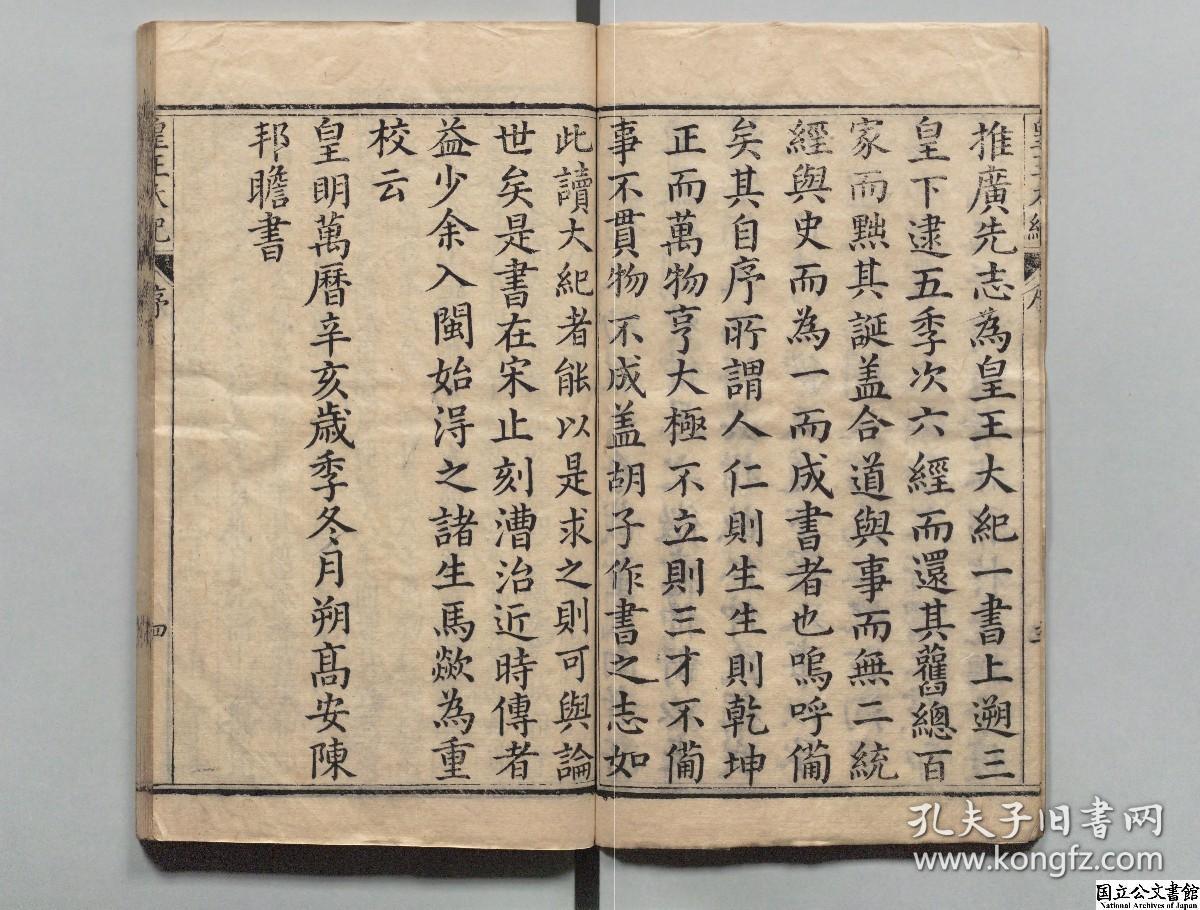 推廣先志為皇王大紀一書上遡三
皇下逮五季次六經而還其舊總百
家而黜其誕盖合道與事而無二統
經與史而為一而成書者也嗚呼備
矣其自序所謂人仁則生生則乾坤
正而萬物亨大極不立則三才不備
事不貫物不成盖胡子作書之志如
此讀大紀者能以是求之則可與論
世矣是書在宋止刻漕治近時傳者
益少余入閩始淂之諸生馬歘為重
校云
皇明萬曆辛亥歲季冬月朔高安陳
邦瞻書
皇王大紀
序
四
孔夫子旧书网
www.kongfz.com
国立公文書館
National Archives of Japan